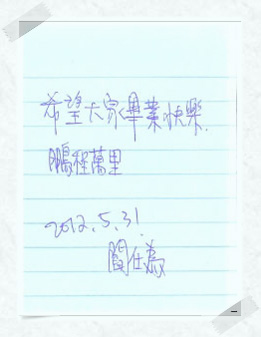 希望大家畢業快樂.
鵬程萬里
2012.5.31.
閻任為